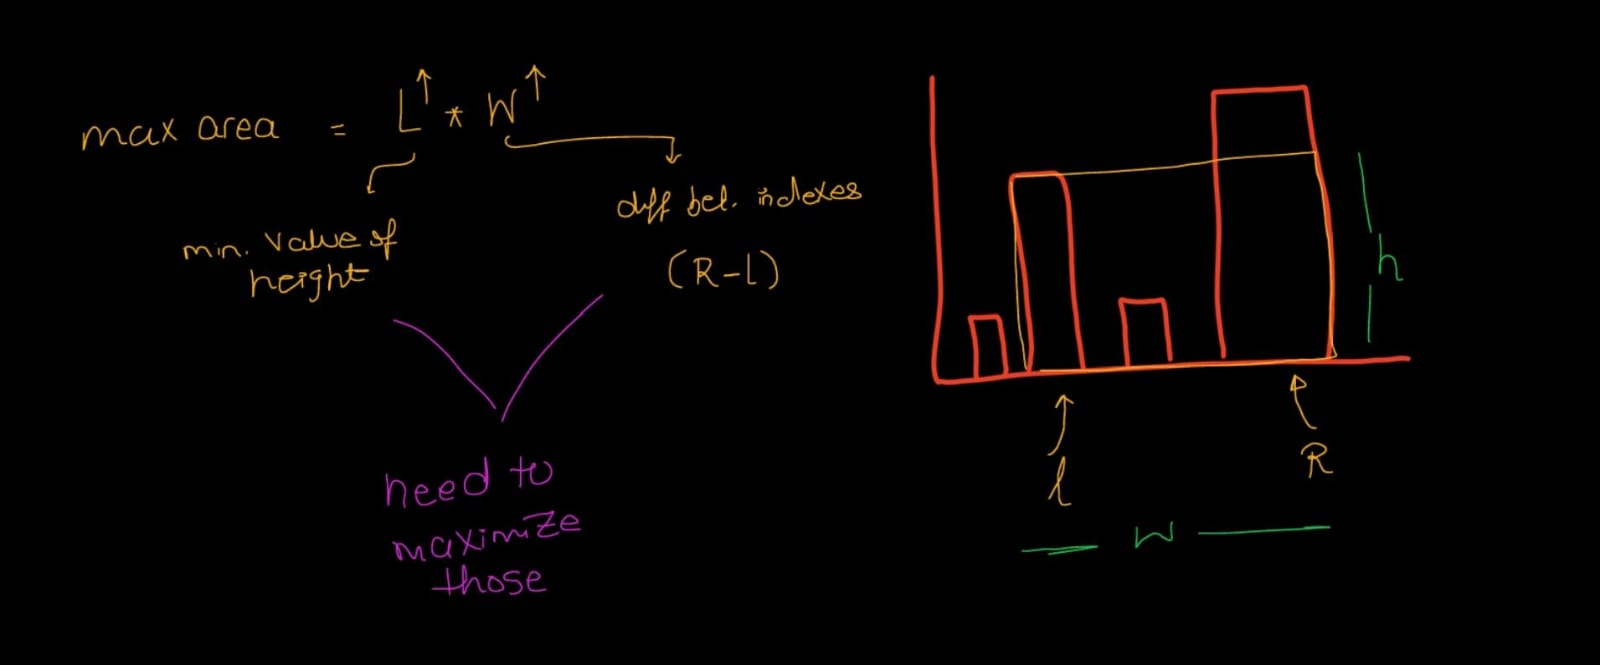 max area = L↑ * W↑
min. value of
height
diff bet. indexes
(R-L)
need to
maximize
those
h
l
R
W